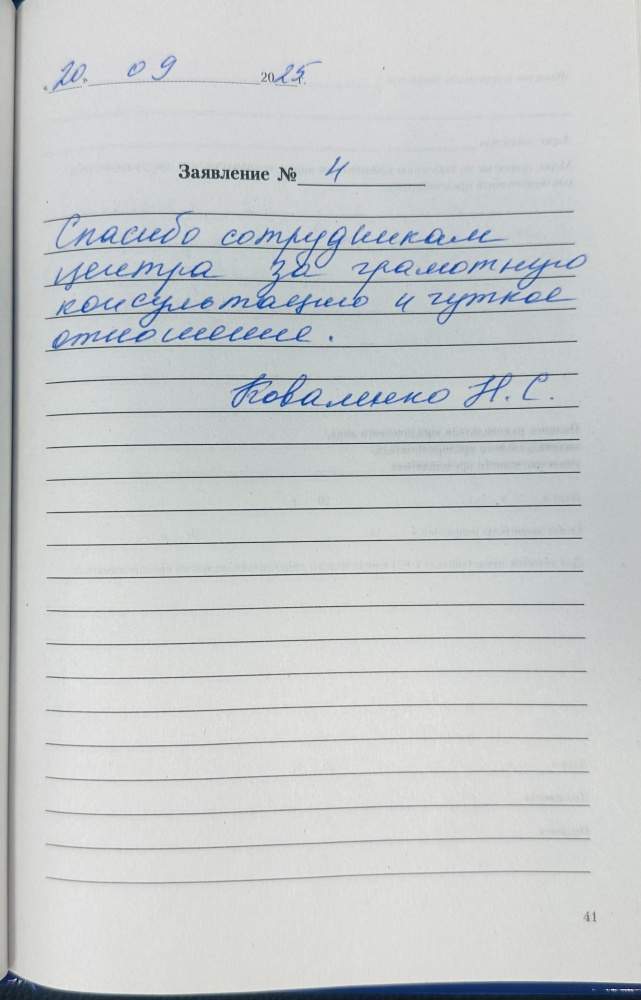 «20» 09 2025 г.
Заявление № 4
Спасибо сотрудникам
центра за грамотную
консультацию и чуткое
отношение.
Коваленко Н. С.
41